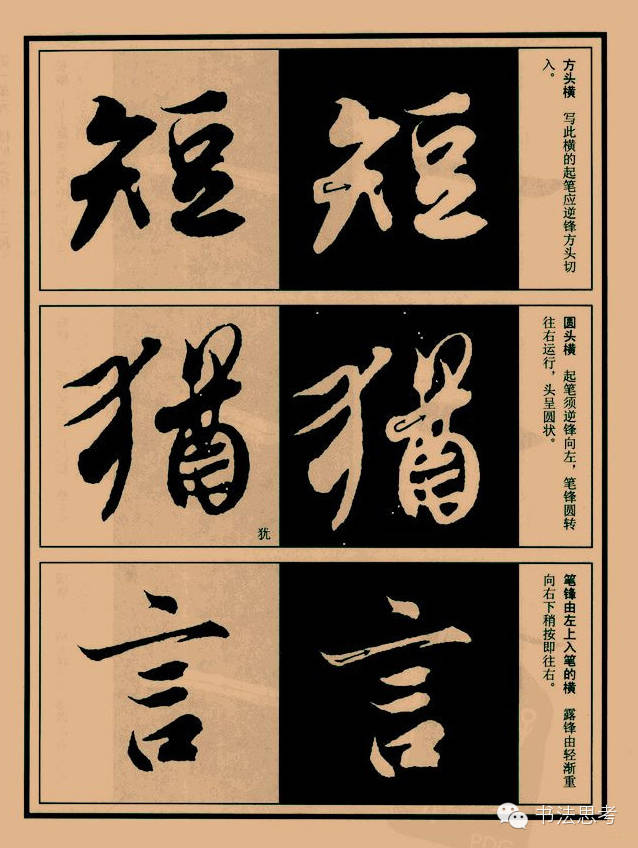 方头横　写此横的起笔应逆锋方头切
入。
短 短
圆头横　起笔须逆锋向左，笔锋圆转
往右运行，头呈圆状。
猶 猶
犹
笔锋由左上入笔的横　露锋由轻渐重
向右下稍按即往右。
言 言
书法思考
PDG